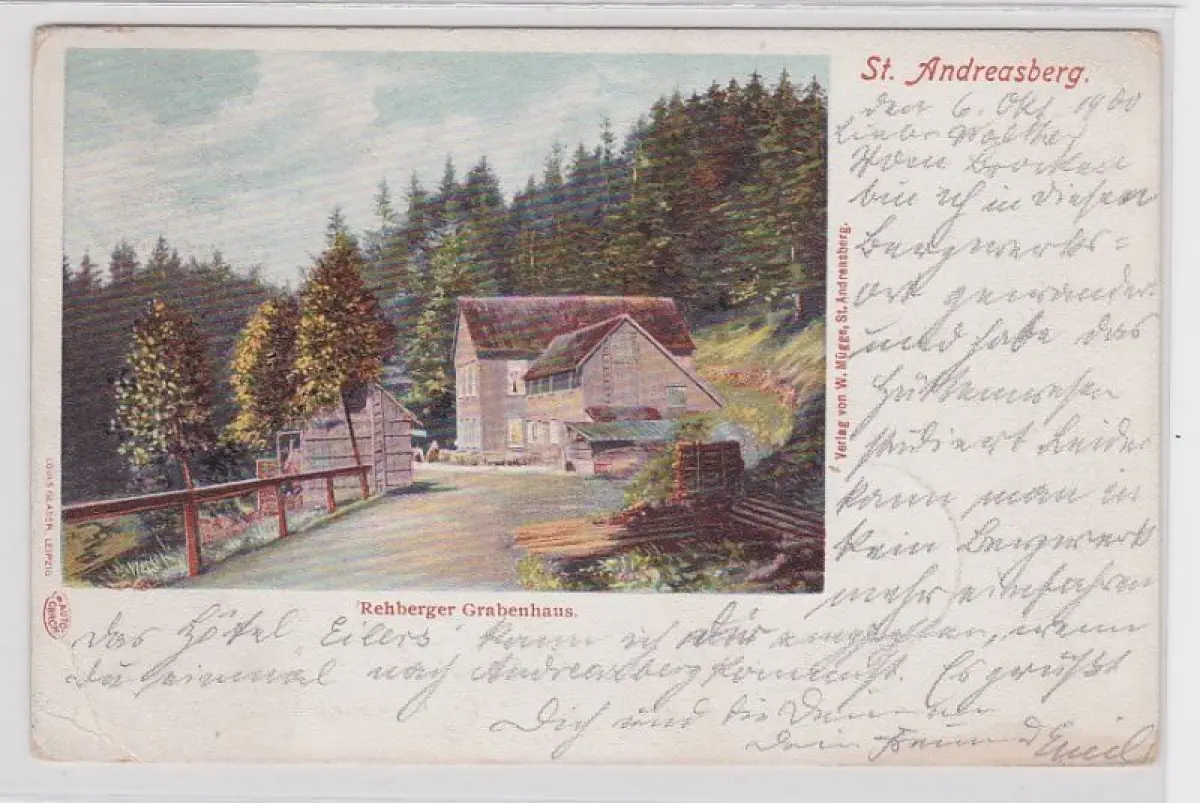 St. Andreasberg.
den 6. Okt 1900
Vom Brocken
bin ich in diesen
Bergwerks=
ort gewandert
und habe das
Hüttenwesen
studiert Leider
kann man in
kein Bergwerk
mehr einfahren
Verlag von W. Mügge, St. Andreasberg.
LOUIS GLASER LEIPZIG
AUTO-CHROM
Rehberger Grabenhaus.
das Hotel Eilers kann ich Dir empfehlen, wenn
Du einmal nach Andreasberg kommst. Es grüßt
Dich und die Deinen
Dein Freund Emil